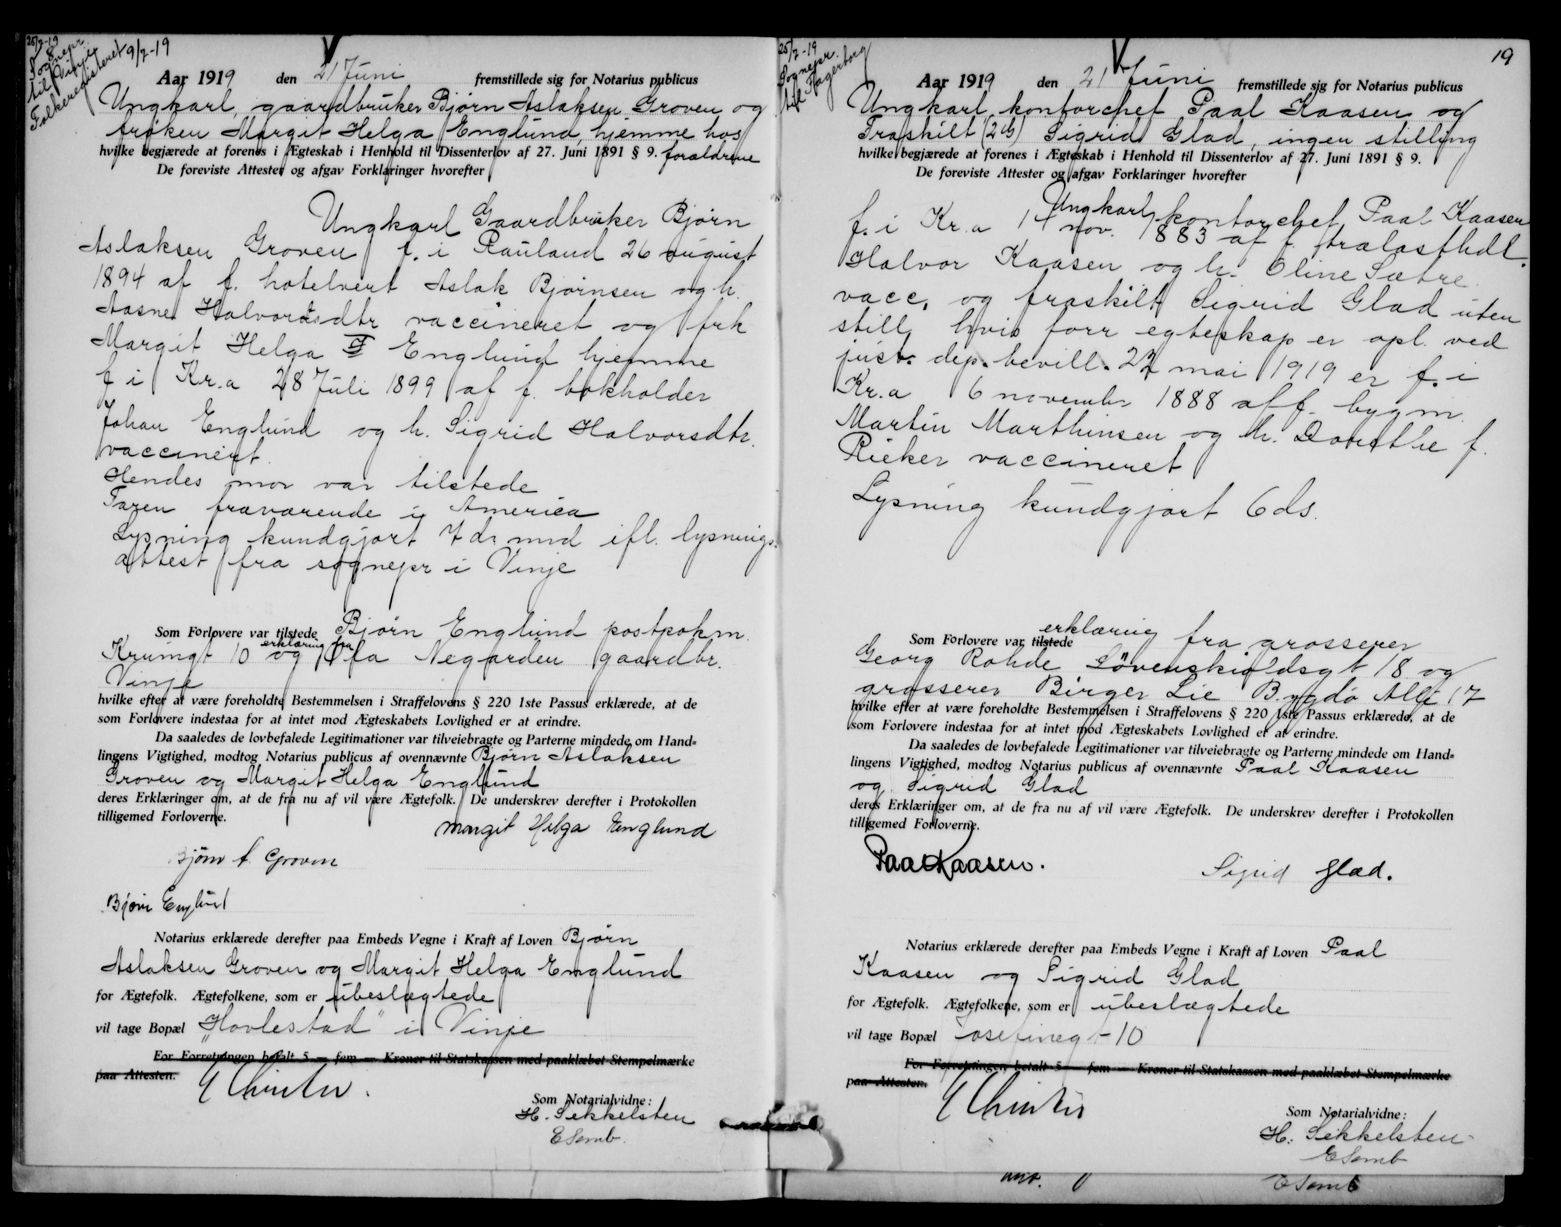 25/7-19
Sognepr.
til Vinje
Folkeregisteret 9/7-19
Aar 1919 den 21 Juni fremstillede sig for Notarius publicus
Ungkarl, gaardbruker Bjørn Aslaksen Groven og
frøken Margit Helga Englund, hjemme hos
hvilke begjærede at forenes i Ægteskab i Henhold til Dissenterlov af 27. Juni 1891 § 9. forældrene
De foreviste Attester og afgav Forklaringer hvorefter
Ungkarl Gaardbruker Bjørn
Aslaksen Groven f. i Rauland 26 august
1894 af f. hotelvert Aslak Bjørnsen og h.
Aasne Halvorsdtr vaccineret og frk
Margit Helga Englund hjemme
f i Kr.a 28 Juli 1899 af f. bokholder
Johan Englund og h. Sigrid Halvorsdtr.
vaccinert.
Hendes mor var tilstede
Faren fraværende i America
Lysning kundgjort 7 ds mnd ifl. lysnings-
attest fra sognepr i Vinje
Som Forlovere var tilstede Bjørn Englund postpakm.
Krumgt 10 og erklæring fra Ola Negarden gaardbr.
Vinje
hvilke efter at være foreholdte Bestemmelsen i Straffelovens § 220 1ste Passus erklærede, at de
som Forlovere indestaa for at intet mod Ægteskabets Lovlighed er at erindre.
Da saaledes de lovbefalede Legitimationer var tilveiebragte og Parterne mindede om Hand-
lingens Vigtighed, modtog Notarius publicus af ovennævnte Bjørn Aslaksen
Groven og Margit Helga Englund
deres Erklæringer om, at de fra nu af vil være Ægtefolk. De underskrev derefter i Protokollen
tilligemed Forloverne.
Margit Helga Englund
Bjørn A. Groven
Bjørn Englund
Notarius erklærede derefter paa Embeds Vegne i Kraft af Loven Bjørn
Aslaksen Groven og Margit Helga Englund
for Ægtefolk. Ægtefolkene, som er ubeslægtede
vil tage Bopæl "Hovlestad" i Vinje
For Forretningen betalt 5 — fem — Kroner til Statskassen med paaklæbet Stempelmærke
paa Attesten.
Som Notarialvidne:
H. Sikkelsten
E Semb.
19
25/7-19
Sognepr.
til Fagerborg
Aar 1919 den 21 Juni fremstillede sig for Notarius publicus
Ungkarl kontorchef Paal Kaasen og
Fraskilt (2 G) Sigrid Glad, ingen stilling
hvilke begjærede at forenes i Ægteskab i Henhold til Dissenterlov af 27. Juni 1891 § 9.
De foreviste Attester og afgav Forklaringer hvorefter
Ungkarl kontorchef Paal Kaasen
f. i Kr.a 14 nov. 1883 af f. trælasthdl.
Halvor Kaasen og h. Oline Sætre.
vacc. og fraskilt Sigrid Glad uten
still. hvis forr egteskap er opl. ved
just. dep. bevill. 22 mai 1919 er f. i
Kr.a 6 november 1888 af f. bygm.
Martin Marthinsen og h. Dorthe f.
Rieker vaccineret
Lysning kundgjort 6 ds.
Som Forlovere var tilstede erklæring fra grosserer
Georg Rohde Løvenskioldsgt 18 og
grosserer Birger Lie Bygdø Allé 17
hvilke efter at være foreholdte Bestemmelsen i Straffelovens § 220 1ste Passus erklærede, at de
som Forlovere indestaa for at intet mod Ægteskabets Lovlighed er at erindre.
Da saaledes de lovbefalede Legitimationer var tilveiebragte og Parterne mindede om Hand-
lingens Vigtighed, modtog Notarius publicus af ovennævnte Paal Kaasen
og Sigrid Glad
deres Erklæringer om, at de fra nu af vil være Ægtefolk. De underskrev derefter i Protokollen
tilligemed Forloverne.
Paal Kaasen. Sigrid Glad.
Notarius erklærede derefter paa Embeds Vegne i Kraft af Loven Paal
Kaasen og Sigrid Glad
for Ægtefolk. Ægtefolkene, som er ubeslægtede
vil tage Bopæl Josefinegt 10
For Forretningen betalt 5 — fem — Kroner til Statskassen med paaklæbet Stempelmærke
paa Attesten.
Som Notarialvidne:
H. Sikkelsten
E Semb
E Semb